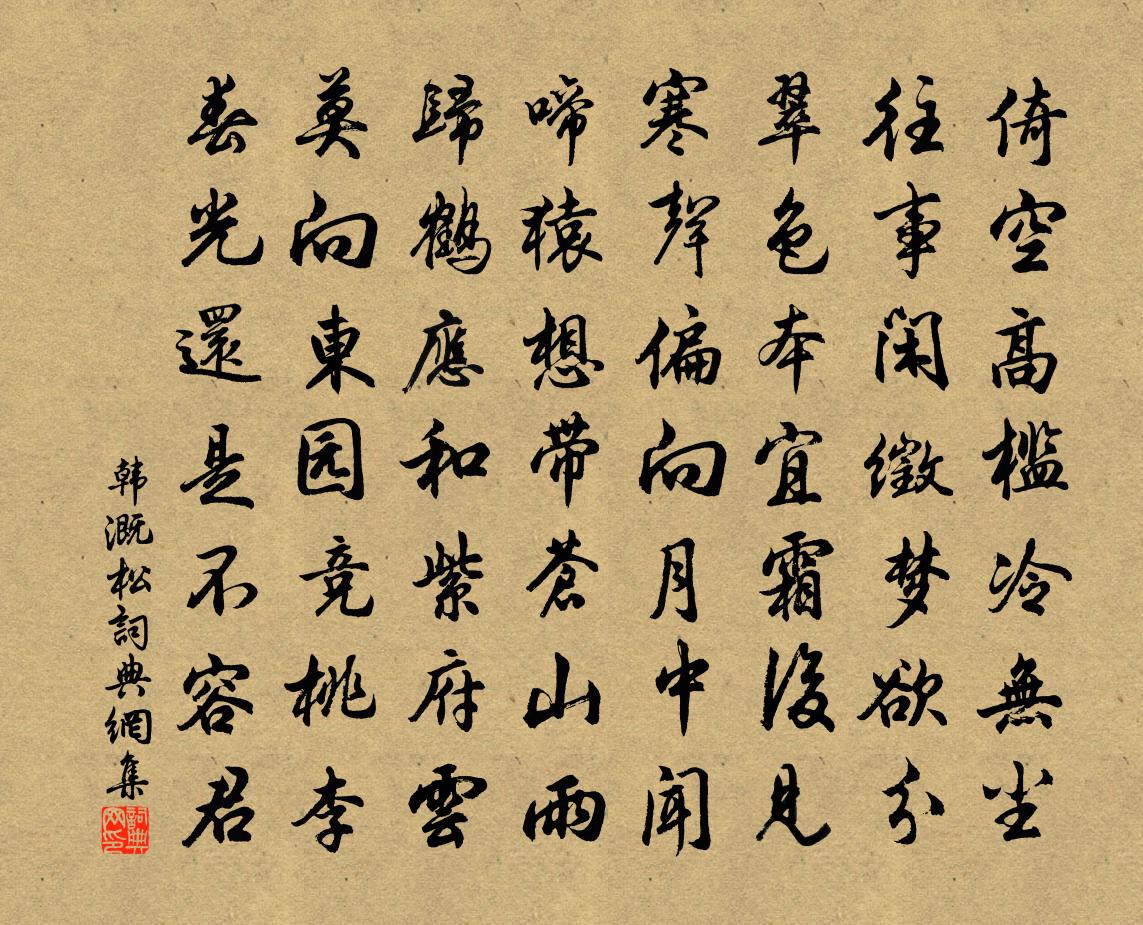 倚空高檻冷無尘
往事閑徵梦欲分
翠色本宜霜後見
寒聲偏向月中聞
啼猿想带蒼山雨
歸鶴應和紫府雲
莫向東园竞桃李
春光還是不容君
韩溉松詞典網集
詞典网印